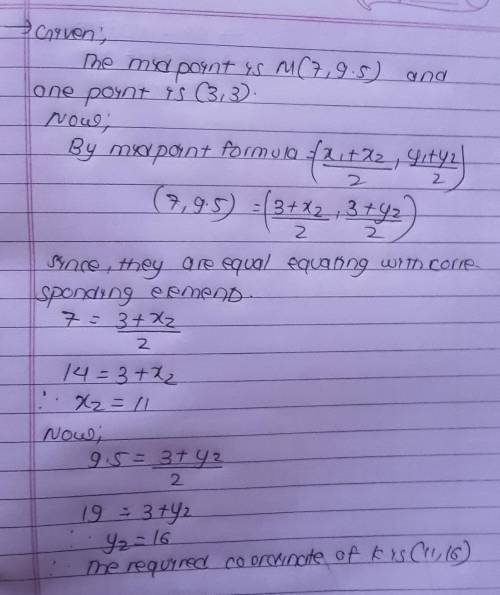 → Given;
The midpoint is M(7, 9.5) and
one point is (3,3).
Now;
By midpoint formula = (x₁+x₂/2, y₁+y₂/2)
(7, 9.5) = (3+x₂/2, 3+y₂/2)
Since, they are equal equating with corre-
sponding element.
7 = 3+x₂/2
14 = 3+x₂
∴ x₂ = 11
Now;
9.5 = 3+y₂/2
19 = 3+y₂
∴ y₂ = 16
∴ The required coordinate of K is (11,16)